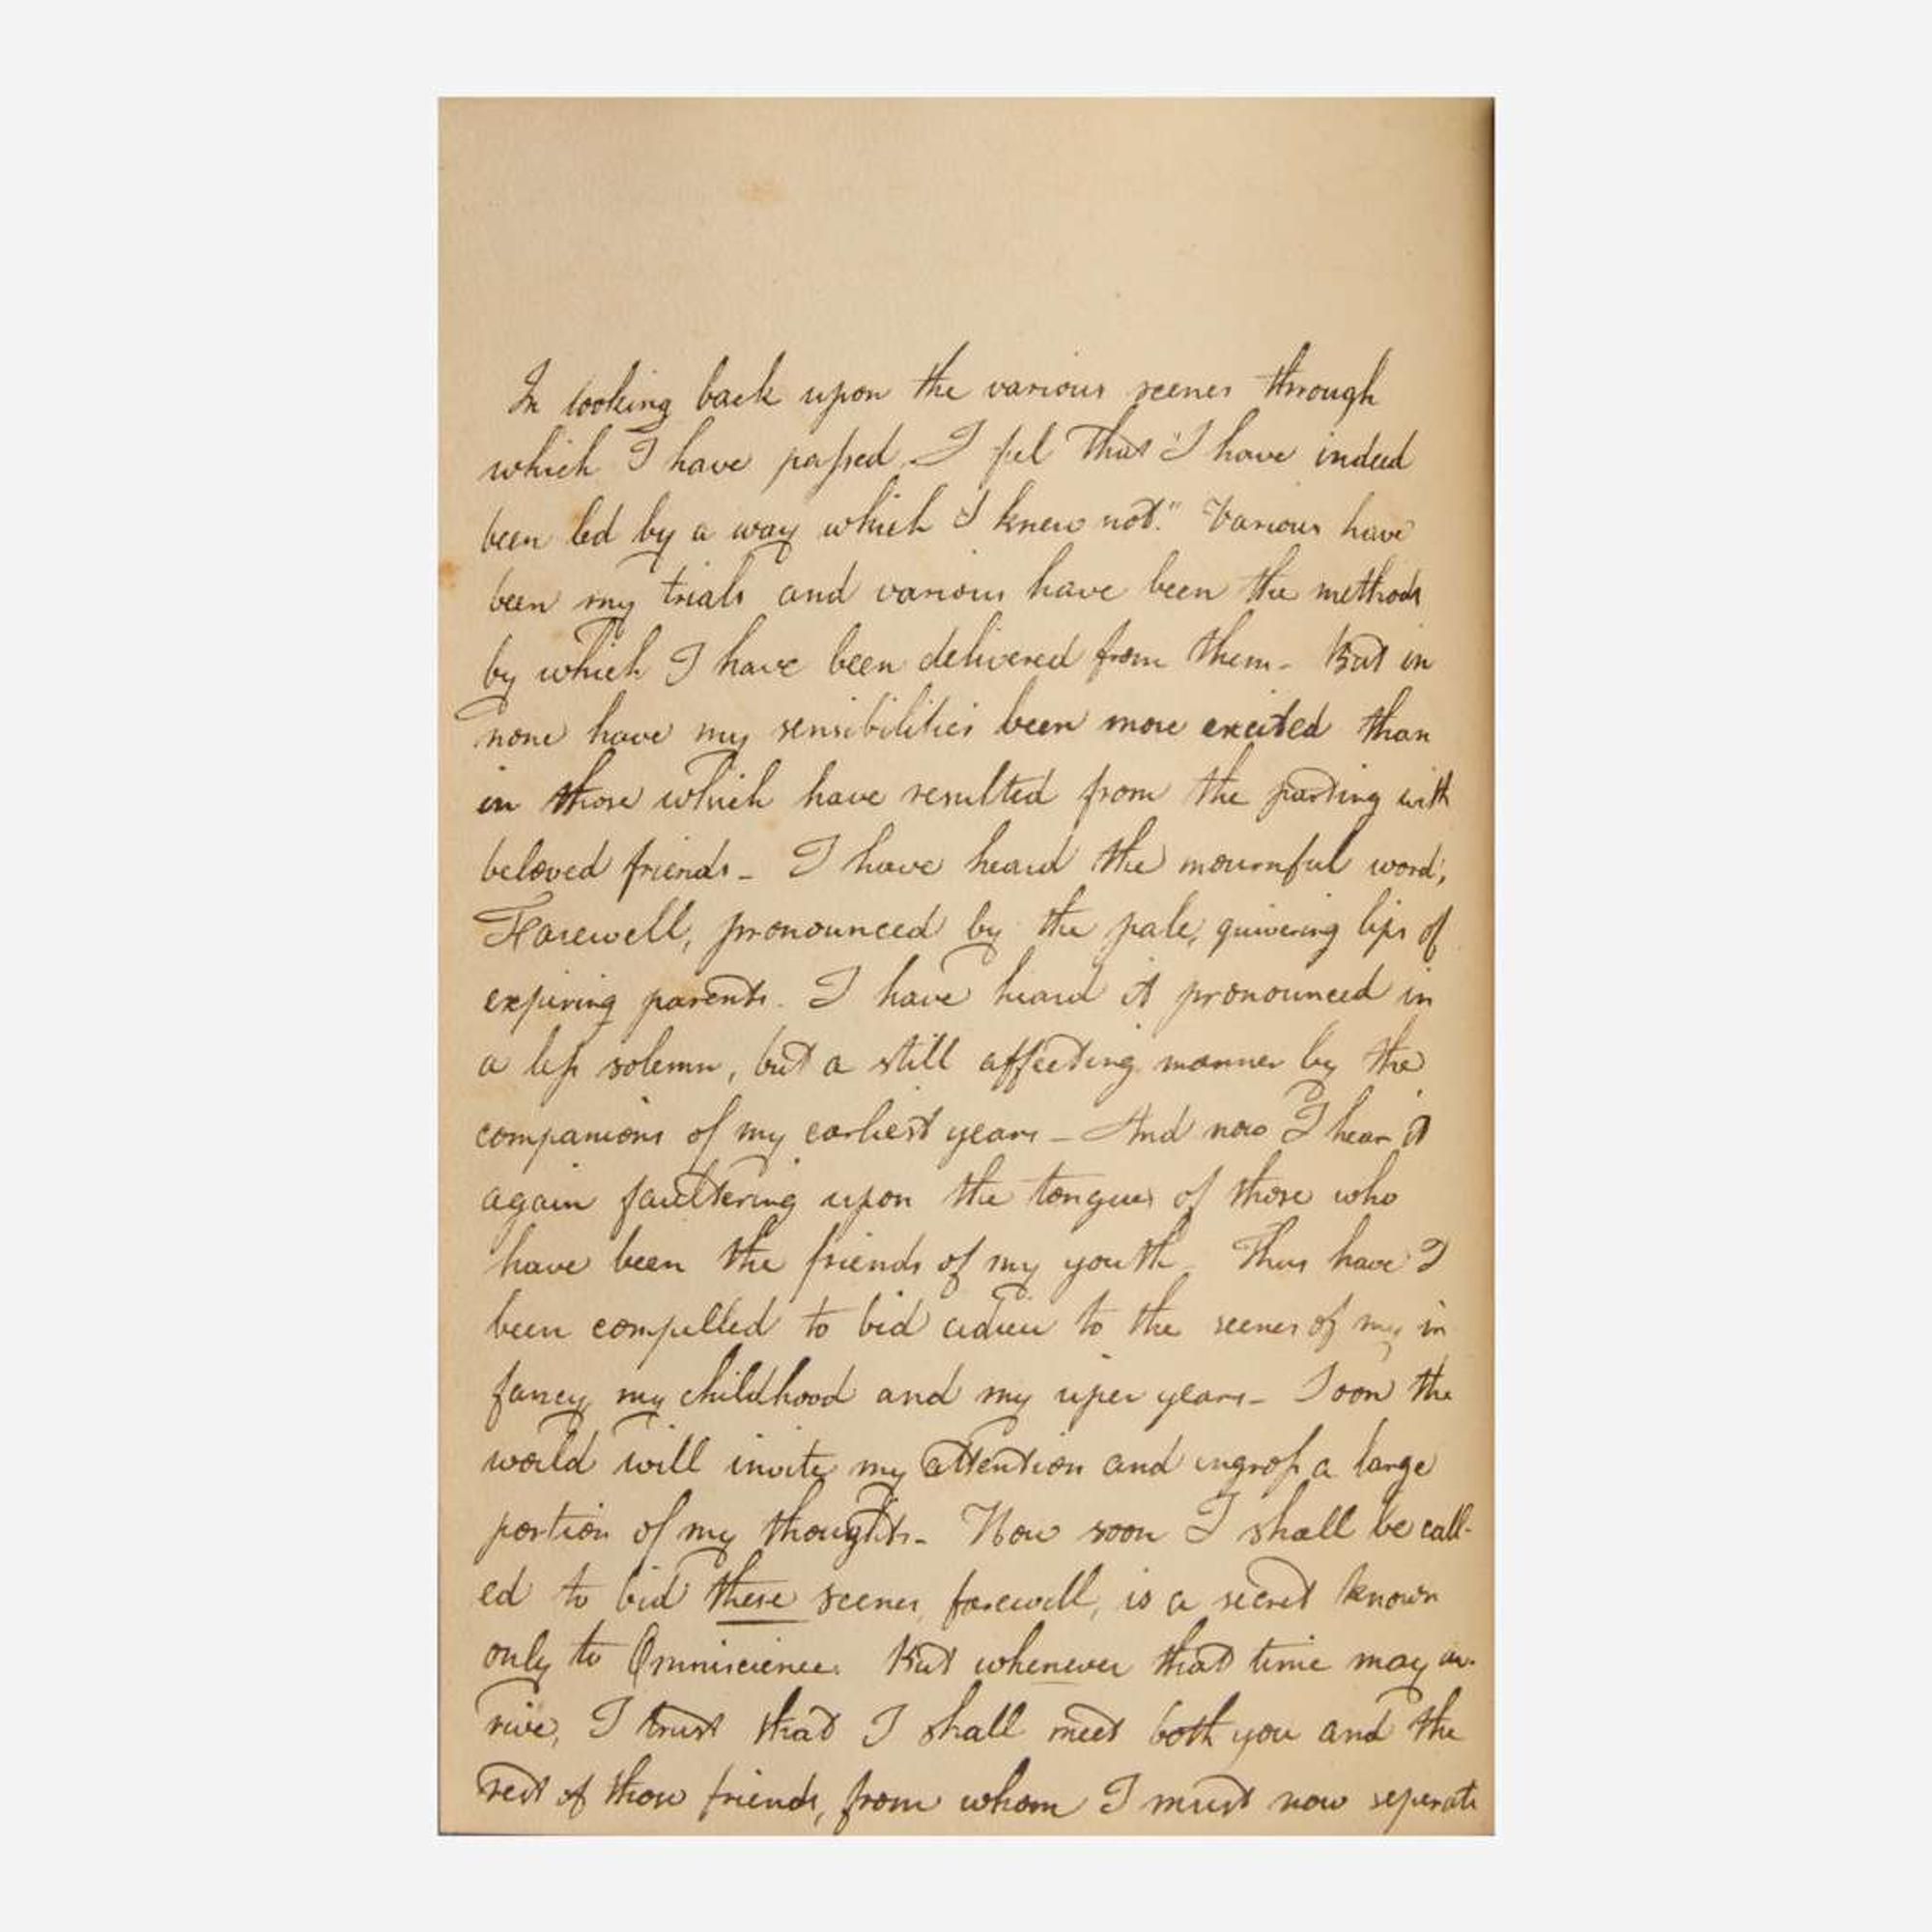 In looking back upon the various scenes through
which I have passed, I feel that "I have indeed
been led by a way which I knew not." Various have
been my trials and various have been the methods
by which I have been delivered from them - But in
none have my sensibilities been more excited than
in those which have resulted from the parting with
beloved friends - I have heard the mournful word,
Farewell, pronounced by the pale, quivering lips of
expiring parents. I have heard it pronounced in
a less solemn, but a still affecting manner by the
companions of my earliest years - And now I hear it
again faultering upon the tongues of those who
have been the friends of my youth - Thus have I
been compelled to bid adieu to the scenes of my in
fancy my childhood and my riper years - Soon the
world will invite my attention and ingross a large
portion of my thoughts - How soon I shall be call-
ed to bid these scenes farewell, is a secret known
only to Omniscience. But whenever that time may ar-
rive, I trust that I shall meet both you and the
rest of those friends, from whom I must now seperate